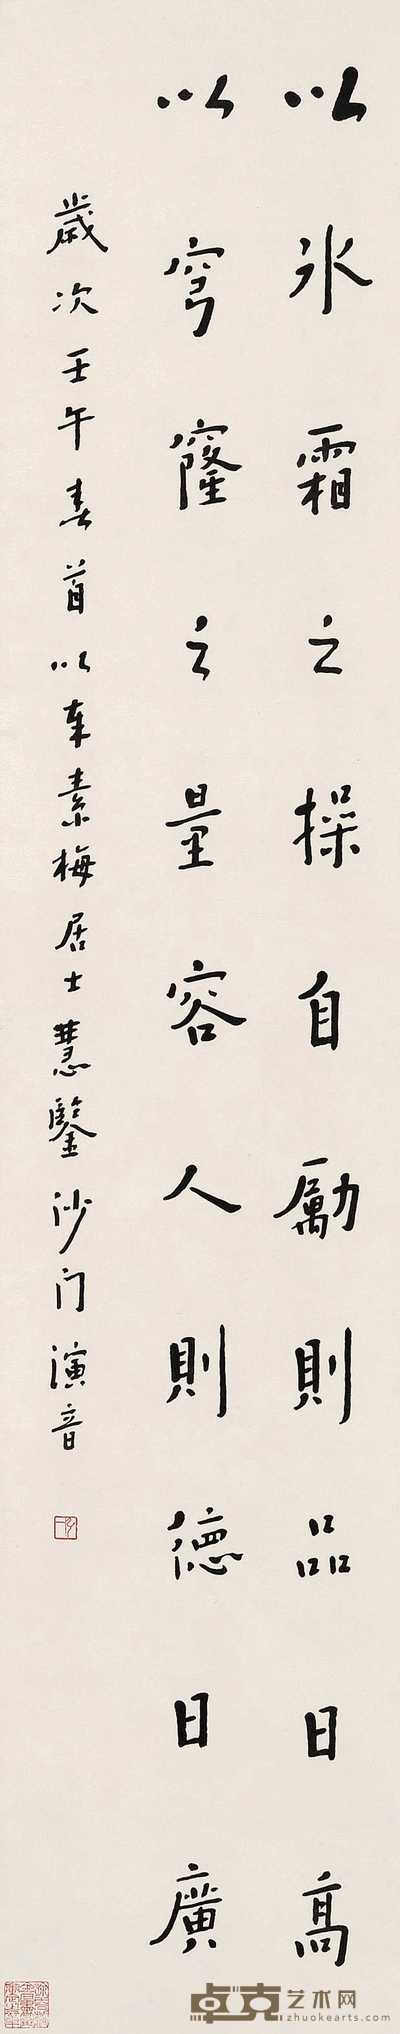 以冰霜之操自勵則品日高
以穹窿之量容人則德日廣
歲次壬午春首以奉素梅居士慧鑒沙门演音
卓克艺术网
zhuokearts.com